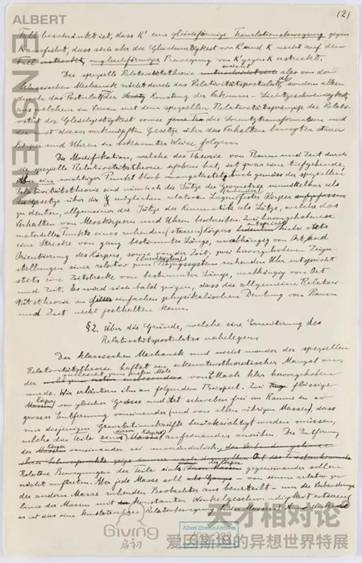 ALBERT
EINSTEIN
(2)
dass K' eine gleichförmige Translationsbewegung gegen
K ausführt, dass sich aber die Gleichwertigkeit von K und K' nicht auf den
ungleichförmiger Bewegung von K' gegen K erstreckt.
Die spezielle Relativitätstheorie weicht also von der
klassischen Mechanik nicht durch das Relativitätspostulat ab, sondern allein
durch das Postulat von der Konstanz der Vakuum-Lichtgeschwindigkeit,
aus welchem im Verein mit dem speziellen Relativitätsprinzip die Relati-
vität der Gleichzeitigkeit sowie die Lorentztransformation und
die mit dieser verknüpften Gesetze über das Verhalten bewegter starrer
Körper und Uhren in bekannter Weise folgen.
Die Modifikation, welche die Theorie von Raum und Zeit durch
die spezielle Relativitätstheorie erfahren hat, ist zwar eine tiefgehende;
aber ein wichtiger Punkt blieb unangetastet. Auch gemäss der speziellen
Relativitätstheorie sind nämlich die Sätze der Geometrie unmittelbar als
die Gesetze über die möglichen relativen Lagen fester Körper
zu deuten, allgemeiner die Sätze der Kinematik als Sätze, welche das
Verhalten von Messkörpern und Uhren beschreiben. Zwei hervorgehobenen
materiellen Punkten eines ruhenden (starren) Körpers entspricht hiebei stets
eine Strecke von ganz bestimmter Länge, unabhängig von Ort und
Orientierung des Körpers, sowie von der Zeit; zwei hervorgehobenen Zeiger-
stellungen einer relativ zum Bezugssystem ruhenden Uhr entspricht
stets eine Zeitstrecke von bestimmter Länge, unabhängig von Ort
und Zeit. Es wird sich bald zeigen, dass die allgemeine Relativi-
tätstheorie an dieser einfachen physikalischen Deutung von Raum
und Zeit nicht festhalten kann.
§2. Über die Gründe, welche eine Erweiterung des
Relativitätspostulates nahelegen.
Der klassischen Mechanik und nicht minder der speziellen
Relativitätstheorie haftet ein erkenntnistheoretischer Mangel an,
der von E. Mach klar hervorgehoben
wurde. Wir erläutern ihn an folgendem Beispiel. Zwei flüssige
Körper von gleicher Grösse und Art schweben frei im Raume in so
grosser Entfernung voneinander (und von allen übrigen Massen), dass
nur diejenigen Gravitationskräfte berücksichtigt werden müssen,
welche die Teile eines dieser Körper aufeinander ausüben. Die Entfernung
der Körper voneinander sei unveränderlich.
Relative Bewegungen der Teile eines der Körper gegeneinander sollen
nicht auftreten. Aber jede Masse soll von einem relativ zu
der anderen Masse ruhenden Beobachter aus beurteilt um die Verbindungs-
linie der Massen mit konstanter Winkelgeschwindigkeit rotieren
es ist dies eine konstatierbare Relativbewegung beider Massen
Giving
启初
天才相对论
爱因斯坦的异想世界特展